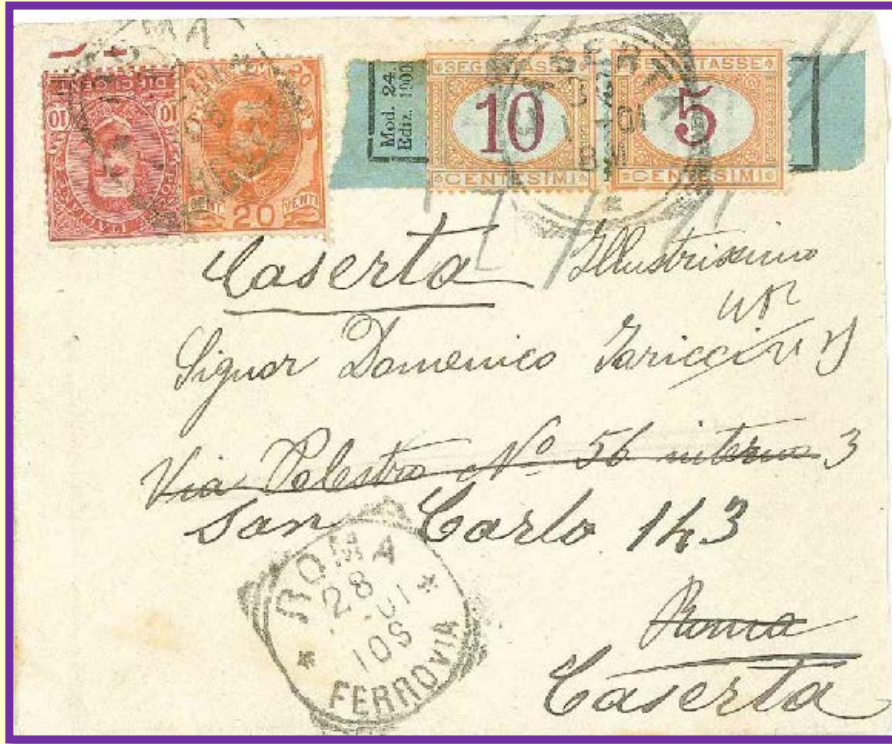 ROMA
DIECI CENT.
10 10
20
20
VENTI
Mod. 24.
Ediz. 1900
SEGNATASSE
10
CENTESIMI
SEGNATASSE
5
CENTESIMI
CASERTA
Caserta Illustrissimo
Signor Domenico
Via Palestro No 56 interno 3
San Carlo 143
Roma
Caserta
ROMA
28
01
10S
FERROVIA